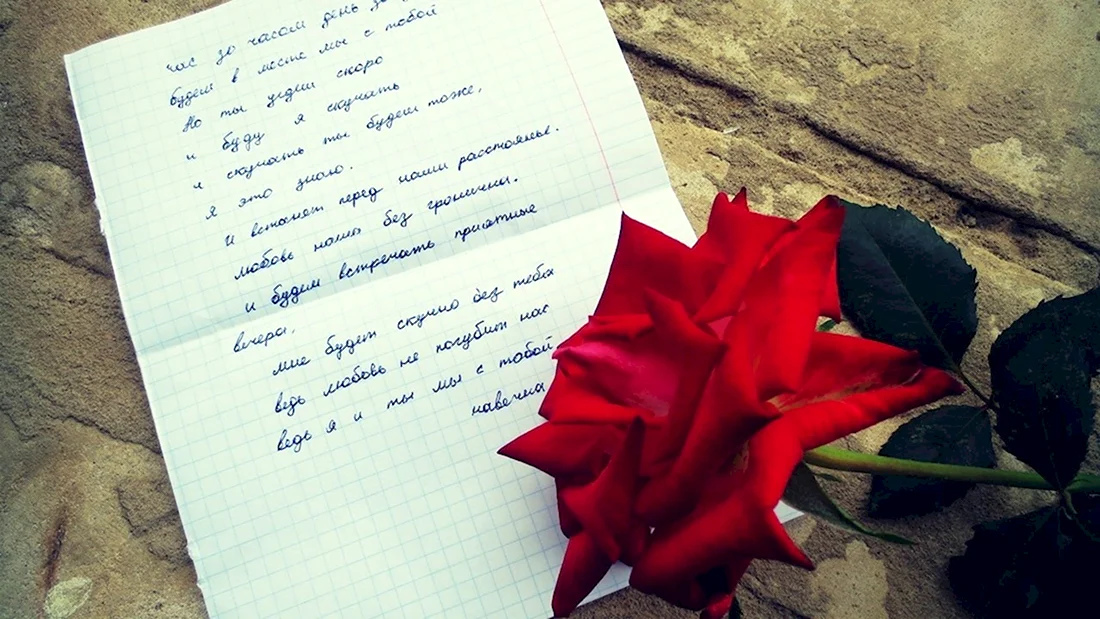 час за часом день за
будем в месте мы с тобой
Но ты уедеш скоро
и буду я скучать
и скучать ты будеш тоже,
я это знаю.
И встанет перед нами расстоянье.
любовь наша без границы.
и будем встречать приятные
вечера,
мне будет скучно без тебя
ведь любовь не погубит нас
ведь я и ты мы с тобой
навечна